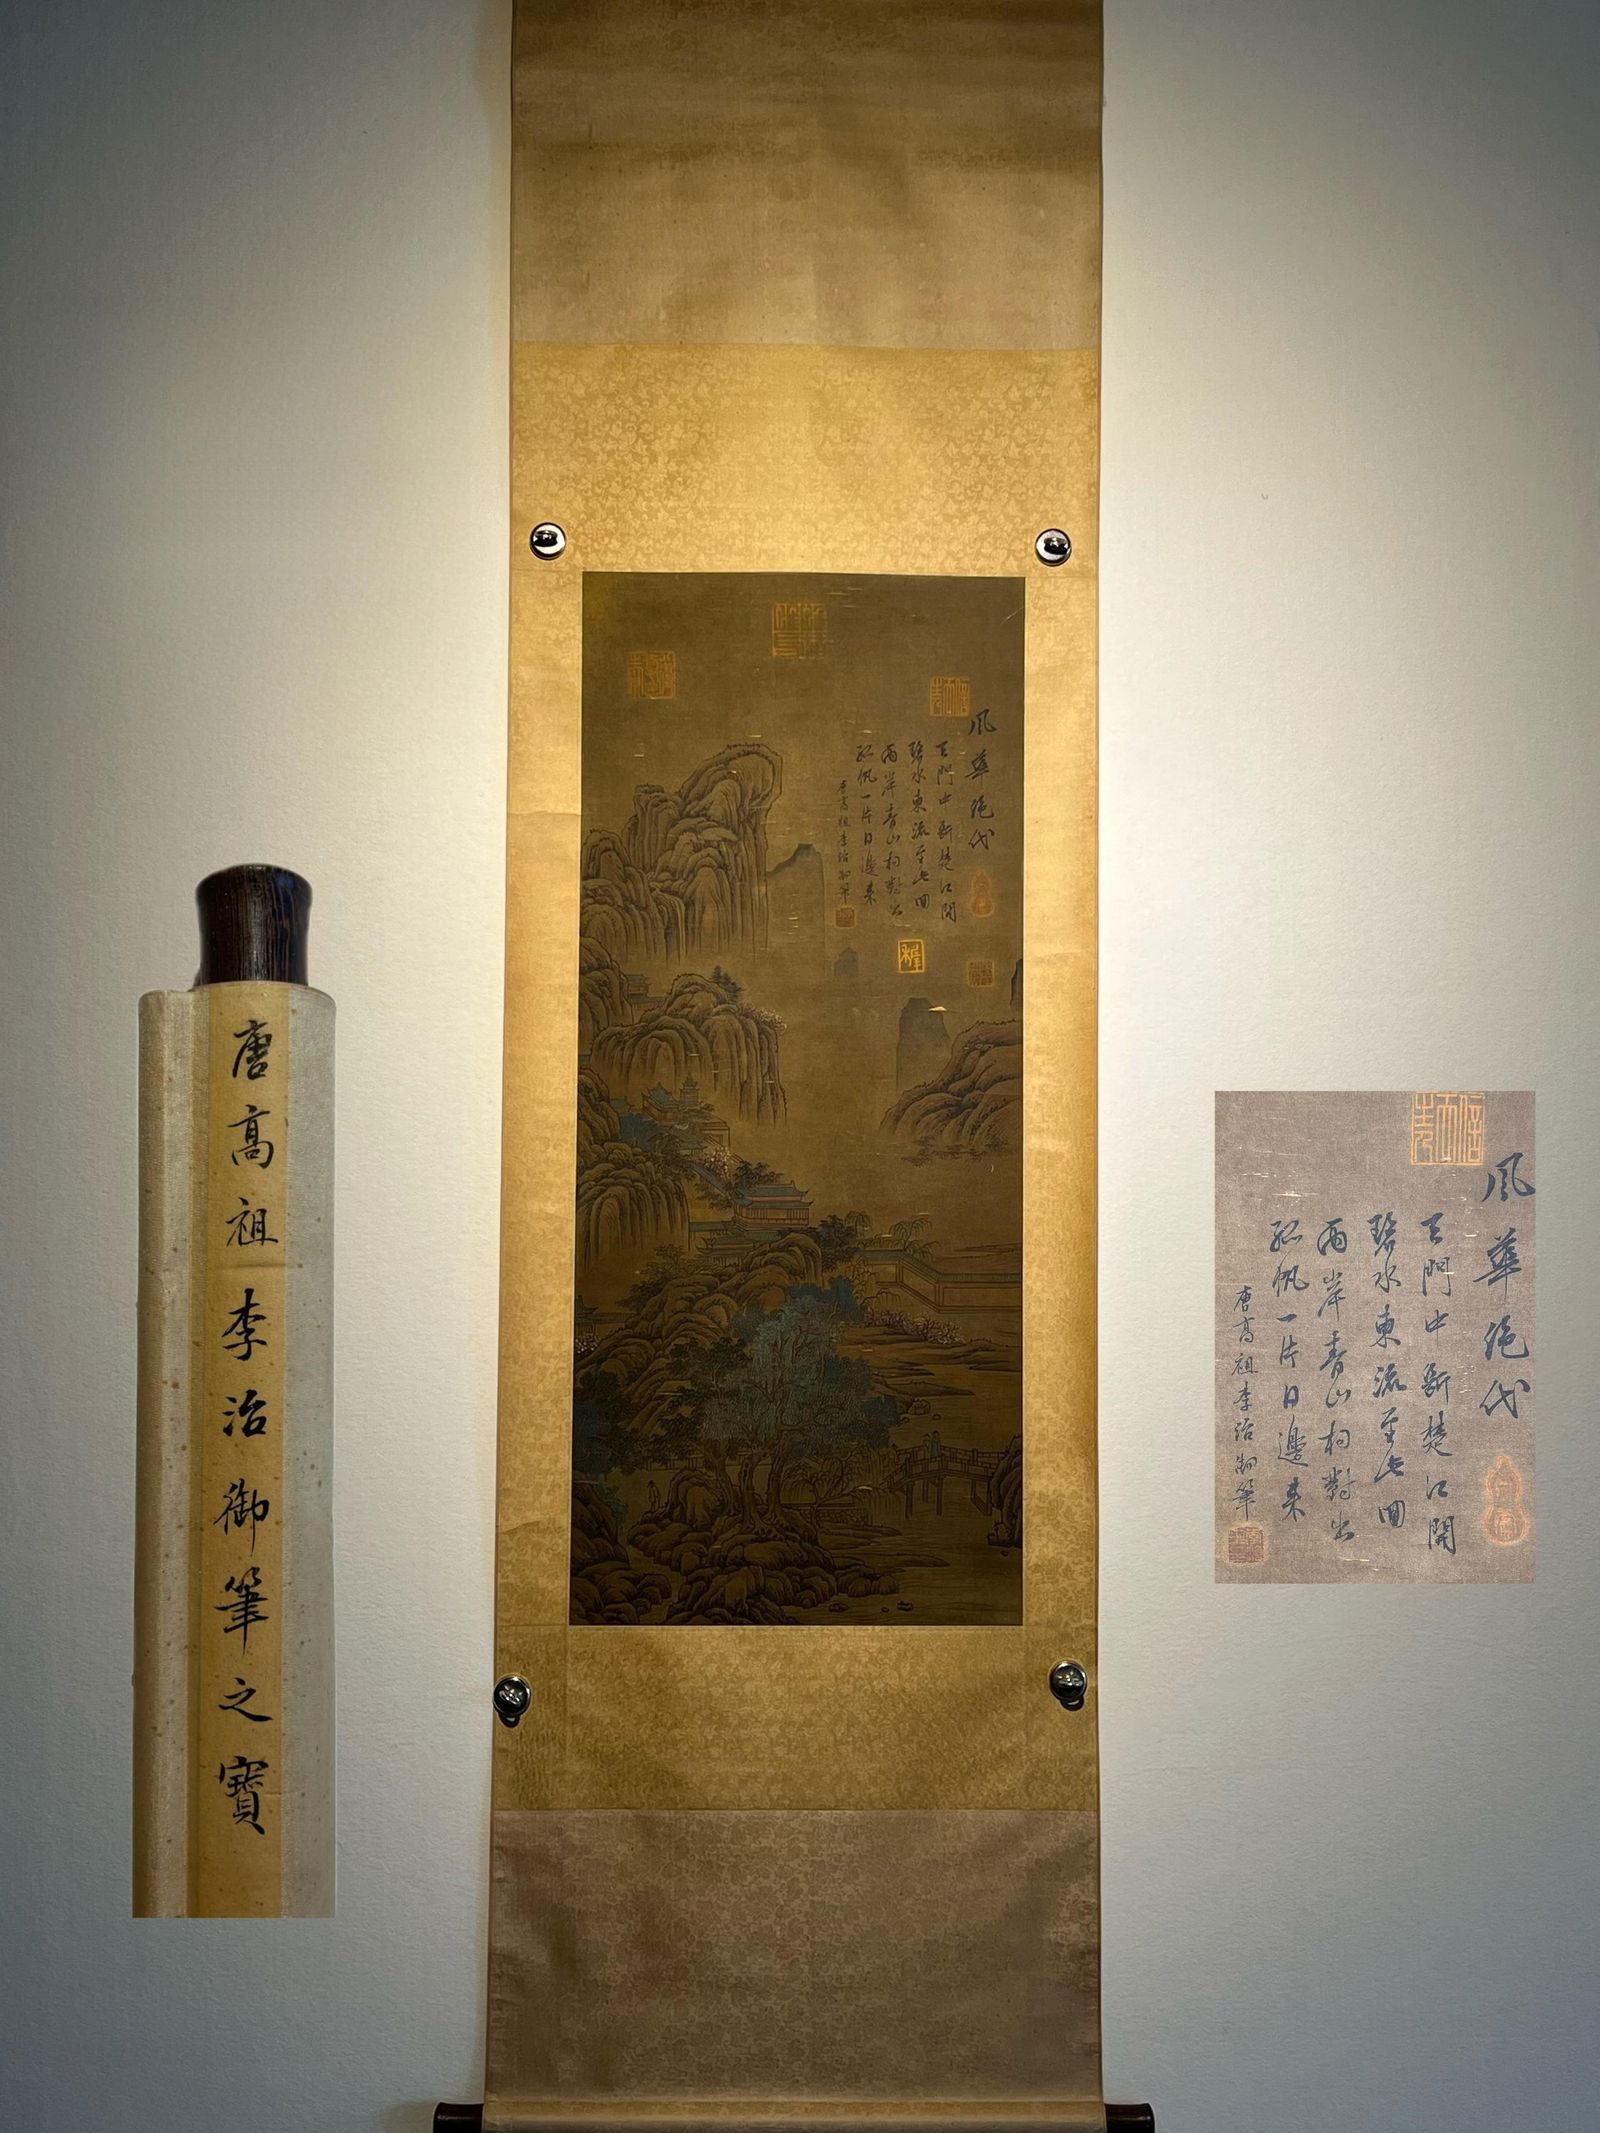 唐高祖李治御筆之寶
風華絕代
天門中斷楚江開
碧水東流至此回
兩岸青山相對出
孤帆一片日邊來
唐高祖李治御筆
風華絕代
天門中斷楚江開
碧水東流至此回
兩岸青山相對出
孤帆一片日邊來
唐高祖李治御筆